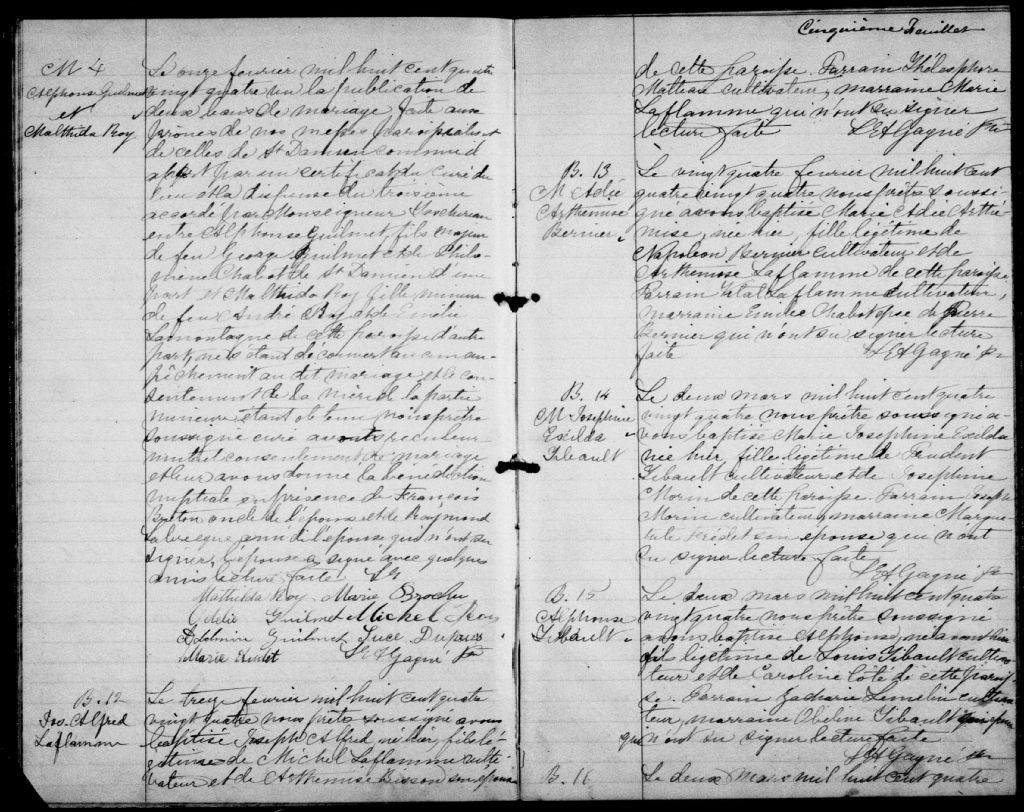 M 4
Alphonse Guilmet
et
Malthida Roy
Le onze fevrier mil huit cent quatre
vingt quatre vu la publication de
deux bans de mariage faite aux
prônes de nos messes paroissiales et
de celles de St Damien comme il
appert par un certificat du Curé du
lieu et la dispense du troisième
accordé par Monseigneur
entre Alphonse Guilmet, fils majeur
de feu George Guilmet et de Philo-
mène Chabot de St Damien d'une
part, et Malthida Roy fille mineur
de feu André Roy et de Emélie
Lamontagne de cette paroisse d'autre
part, ne s'étant découvert aucun em-
pêchement au dit mariage et le con-
sentement de la mère de la partie
mineure étant obtenu nous prêtre
soussigné curé avons reçu leur
mutuel consentement de mariage
et leur avons donné la bénédiction
nuptiale en présence de François
Breton oncle de l'époux et de Raymond
Labrecque ami de l'épouse qui n'ont su
signer, l'épouse a signé avec quelques
amis lecture faite. LG
Mathilda Roy Marie Brochu
Guilmet Michel Roy
Guilmet Luce Dupuis
Marie Audet L E A Gagné Ptr
B. 12
Jos. Alfred
Laflamme
Le treize fevrier mil huit cent quatre
vingt quatre nous prêtre soussigné avons
baptisé Joseph Alfred, né hier, fils lé-
gitime de Michel Laflamme culti-
vateur et de Arthemise Bisson son épouse
Cinquième Feuillet
de cette paroisse. Parrain Thélesphore
Matteau cultivateur, marraine Marie
Laflamme qui n'ont su signer
lecture faite L E A Gagné Ptr
B. 13
M Adée
Arthemise
Bernier
Le vingt quatre fevrier mil huit cent
quatre vingt quatre nous prêtre soussi-
gné avons baptisé Marie Adée Arthé-
mise, née hier, fille légitime de
Napoléon Bernier cultivateur et de
Arthemise Laflamme de cette paroisse
Parrain Vital Laflamme cultivateur,
marraine Chabot épse de Pierre
Bernier qui n'ont su signer lecture
faite L E A Gagné Ptr
B. 14
M Josephine
Exilda
Tibault
Le deux mars mil huit cent quatre
vingt quatre nous prêtre soussigné a-
vons baptisé Marie Josephine Exilda
née hier, fille légitime de Prudent
Tibault cultivateur et de Josephine
Morin de cette paroisse. Parrain Joseph
Morin cultivateur, marraine Margue-
rite son épouse qui n'ont
su signer lecture faite
L E A Gagné Ptr
B. 15
Alphonse
Tibault
Le deux mars mil huit cent quatre
vingt quatre nous prêtre soussigné
avons baptisé Alphonse, né avant hier
fils légitime de Louis Tibault cultiva-
teur et de Caroline Côté de cette parois-
se. Parrain Zacharie Lemelin cultiva-
teur, marraine Obeline Tibault
qui n'ont su signer lecture faite
L E A Gagné Ptr
B. 16
Le deux Mars mil huit cent quatre